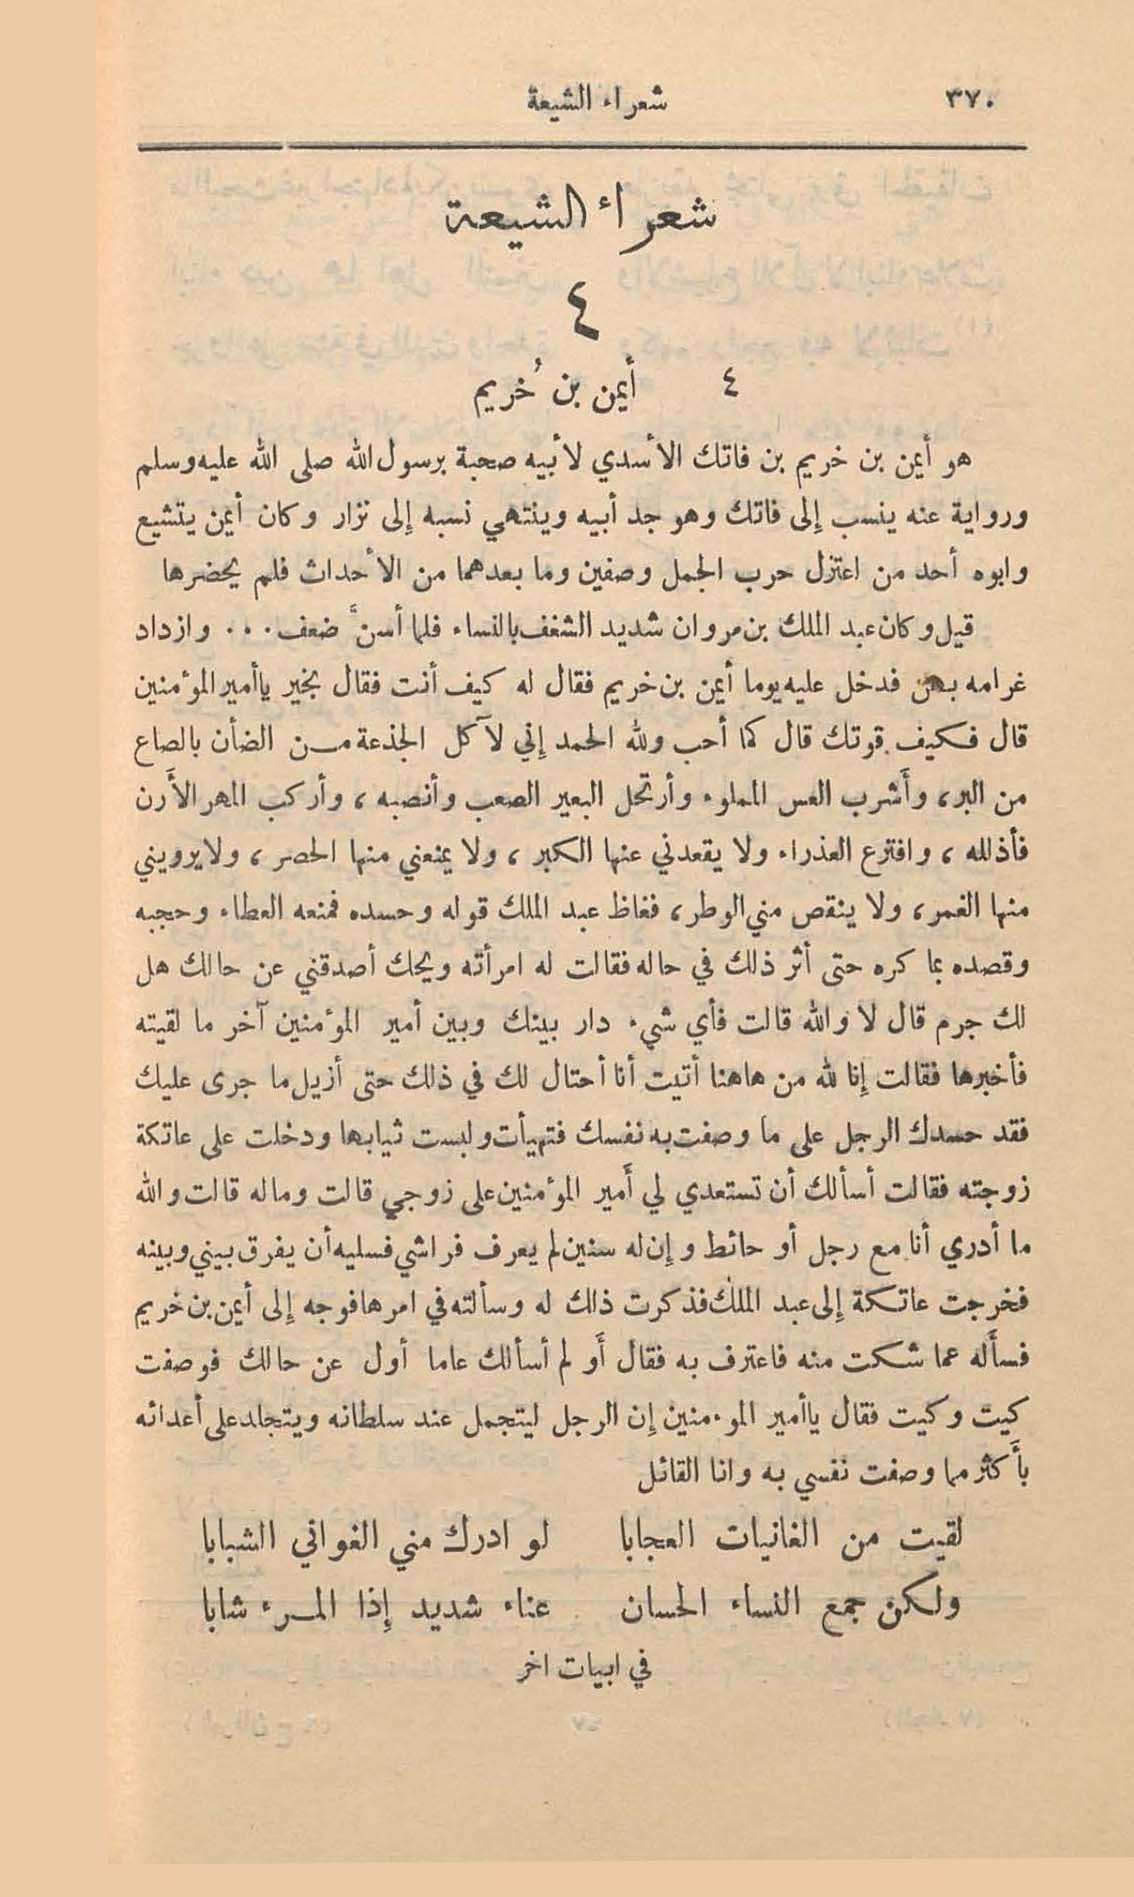 ٣٧٠
شعراء الشيعة
شعراء الشيعة
٤
٤ أيمن بن خُريم
هو أيمن بن خريم بن فاتك الأسدي لأبيه صحبة برسول الله صلى الله عليه وسلم
ورواية عنه ينسب إلى فاتك وهو جد أبيه وينتهي نسبه إلى نزار وكان أيمن يتشيع
وابوه أحد من اعتزل حرب الجمل وصفين وما بعدهما من الأحداث فلم يحضرها
قيل وكان عبد الملك بن مروان شديد الشغف بالنساء فلما أسنّ ضعف... وازداد
غرامه بهن فدخل عليه يوما أيمن بن خريم فقال له كيف أنت فقال بخير ياأمير المؤمنين
قال فكيف قوتك قال كما أحب ولله الحمد إني لآكل الجذعة مــن الضأن بالصاع
من البر، وأَشرب العس المملوء وأرتحل البعير الصعب وأنصبه، وأركب المهر الأَرن
فأذلله، وافترع العذراء ولا يقعدني عنها الكبر، ولا يمنعني منها الحصر، ولا يرويني
منها الغمر، ولا ينقص مني الوطر، فغاظ عبد الملك قوله وحسده فمنعه العطاء وحجبه
وقصده بما كره حتى أثر ذلك في حاله فقالت له امرأته ويحك أصدقني عن حالك هل
لك جرم قال لا والله قالت فأي شيء دار بينك وبين أمير المؤمنين آخر ما لقيته
فأخبرها فقالت إنا لله من هاهنا أتيت أنا أحتال لك في ذلك حتى أزيل ما جرى عليك
فقد حسدك الرجل على ما وصفت به نفسك فتهيأت ولبست ثيابها ودخلت على عاتكة
زوجته فقالت أسألك أن تستعدي لي أَمير المؤمنين على زوجي قالت وماله قالت والله
ما أدري أنا مع رجل أو حائط وإن له سنين لم يعرف فراشي فسليه أن يفرق بيني وبينه
فخرجت عاتكة إلى عبد الملك فذكرت ذلك له وسألته في امرها فوجه إلى أيمن بن خريم
فسأَله عما شكت منه فاعترف به فقال أَو لم أسألك عاما أول عن حالك فوصفت
كيت وكيت فقال ياأمير المؤمنين إن الرجل ليتجمل عند سلطانه ويتجلد على أعدائه
بأَكثر مما وصفت نفسي به وانا القائل
لقيت من الغانيات العجابا لو ادرك مني الغواني الشبابا
ولكن جمع النساء الحسان عناء شديد إذا المــرء شابا
في ابيات اخر